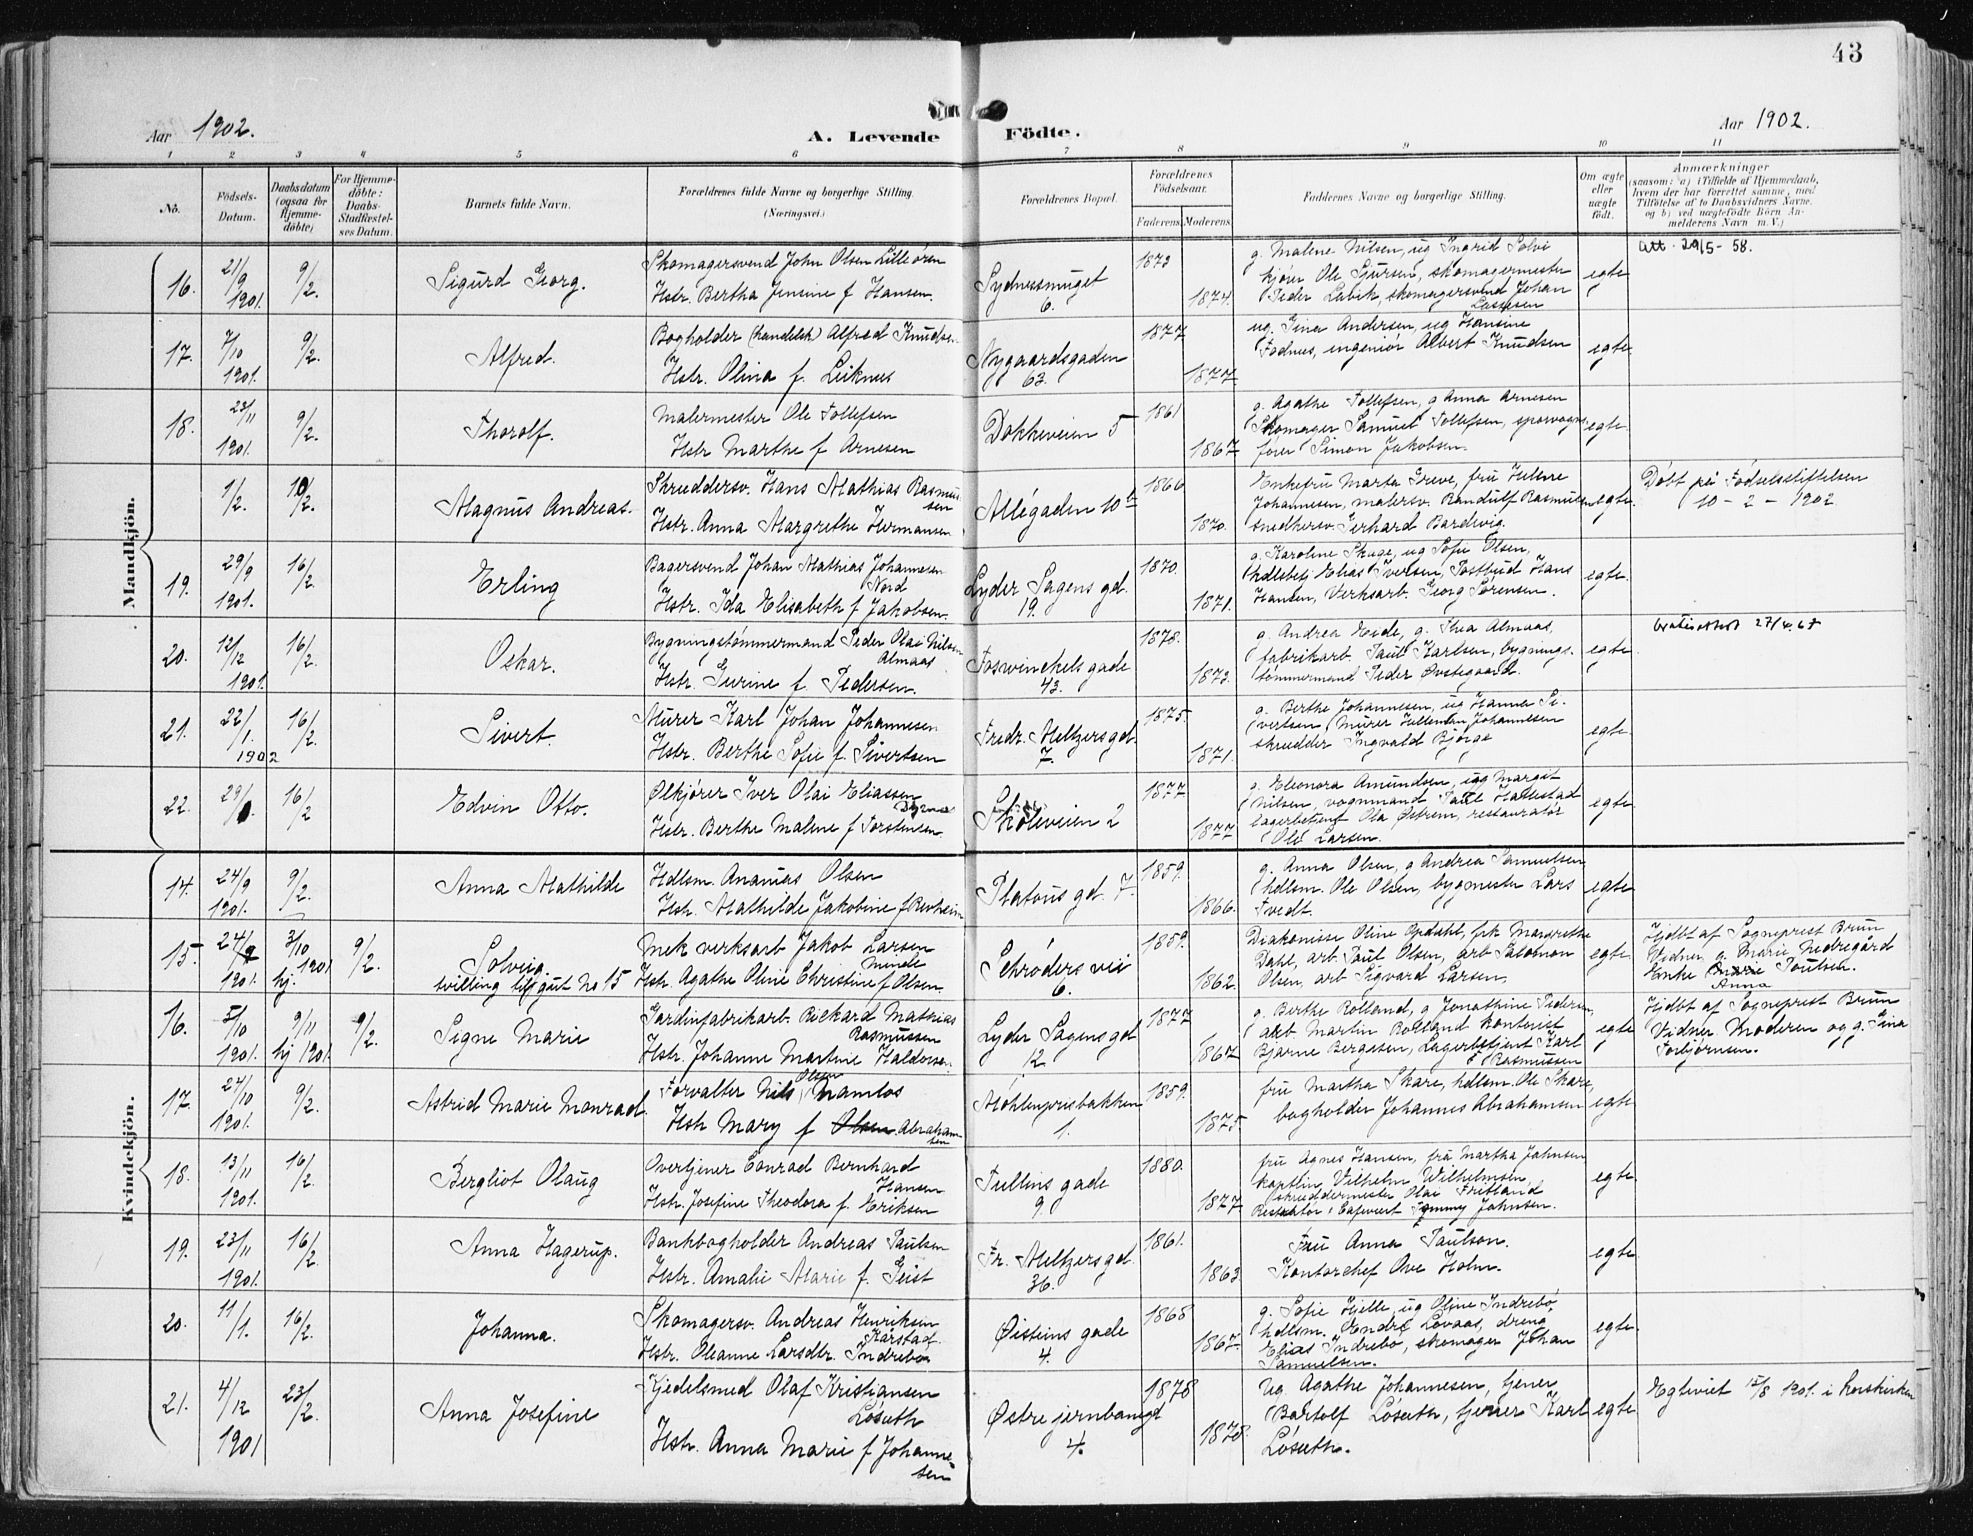 43
Aar 1902.
A. Levende Födte.
Aar 1902.
1 2 3 4 5 6 7 8 9 10 11
No.
Födsels-Datum.
Daabsdatum (ogsaa for Hjemme-döbte)
For Hjemme-döbte: Daabs-Stadfæstel-ses Datum.
Barnets fulde Navn.
Forældrenes fulde Navne og borgerlige Stilling.
(Næringsvei.)
Forældrenes Bopæl.
Forældrenes Födselsaar.
Faderens Moderens
Faddernes Navne og borgerlige Stilling.
Om ægte eller uægte födt.
Anmærkninger
(saasom: a) i Tilfælde af Hjemmedaab,
hvem der har forrettet samme, med
Tilföielse af to Daabsvidners Navne.
og b) ved uægtefödte Börn An-
melderens Navn m. V.)
Mandkjön.
16. 21/9 1901. 9/2. Sigurd Georg.
Skomagersvend John Olsen Lilleören
Hstr. Bertha Jensine f Hansen.
Sydnessmuget 6.
1873 1874.
g. Malene Nilsen, ug Ingrid Solvi
kjörer Ole Sjursen, skomagermester
Peder Lavik, skomagersvend Johan
Lassesen
egte
Att. 29/5-58.
17. 7/10 1901. 9/2. Alfred.
Bogholder (handelsk) Alfred Knudsen
Hstr. Olina f. Leiknes
Nygaardsgaden 63.
1877 1877
ug. Gina Andersen, ug Hansine
Fadnes, ingeniör Albert Knudsen
egte
18. 23/11 1901. 9/2. Thorolf.
Malermester Ole Tollefsen
Hstr Marthe f Arnesen
Dokkeveien 5
1861 1867
g. Agathe Tollefsen, g Anna Arnesen
Skomager Samuel Tollefsen, sporvogns-
förer Simon Jakobsen.
egte.
1/2. 10/2. Magnus Andreas.
Skreddersv. Hans Mathias Rasmus-
sen
Hstr. Anna Margrethe Hermansen
Allégaden 10 b
1866 1870.
Enkefru Marta Greve, fru Helene
Johannesen, malersv. Randulf Rasmussen
snedkersv. Gerhard Bardevig.
egte.
Döbt på Födselsstiftelsen
10-2-1902
19. 29/9 1901. 16/2. Erling
Bagersvend Johan Mathias Johannesen
Nord
Hstr. Ida Elisabeth f Jakobsen.
Lyder Sagens gd. 19.
1870. 1871.
g. Karoline Skage, ug Sofie Olsen,
hdlsbetj Elias Iversen, Postbud Hans
Hansen, Verksarb. Georg Sörensen.
egte.
20. 12/12 1901. 16/2. Oskar.
Bygningstömmermand Peder Olai Nilsen
Almaas
Hstr. Gurine f. Pedersen.
Foswinckels gade 43.
1878. 1873.
g. Andrea Eide, g. Thea Almaas,
fabrikarb. Paul Karlsen, bygnings-
tömmermand Peder Övstegaard.
egte
27/4.67
21. 22/1. 1902 16/2. Sivert.
Murer Karl Johan Johannesen
Hstr. Berthe Sofie f. Sivertsen
Fredr. Meltzersgd. 7.
1875. 1871.
g. Berthe Johannesen, ug Hanna Si-
vertsen, Murer Johannesen
skredder Ingvald Bjorge
egte
22. 29/1. 16/2 Edvin Otto.
Ölkjörer Iver Olai Eliassen
Hstr. Berthe Malene f Torstensen
Skoleveien 2
1877 1877
g. Eleonora Amundsen, ug Margit
Nilsen, vognmand Paul Hallestad
lagerbetjent Ola Östrem, restauratör
Ole Larsen.
egte
Kvindekjön.
14. 24/9 1901. 9/2. Anna Mathilde
Hdlsm. Ananias Olsen
Hstr. Mathilde Jakobine f Revheim
Platous gd. 7.
1859. 1866.
g. Anna Olsen, g Andrea Samuelsen
hdlsm. Ole Olsen, bygmester Lars
Tvedt.
egte
15. 24/9 1901. 3/10 1901 hj. 9/2. Solveig
tvilling til gut No 15
Mek verksarb Jakob Larsen
Minde
Hstr. Agathe Oline Christine f Olsen.
Schröders vei 6.
1859. 1862.
Diakonisse Oline Opdahl, frk Margrethe
Dahl, arb. Paul Olsen, arb Salomon
Olsen, arb Sigvard Larsen.
egte
Hjdbt af Sogneprest Brun
Vidner g. Marie Nedregård
Enke Anna Poulsen.
16. 5/10 1901. 9/11 hj 1901. 9/2. Signe Marie
Gardinfabrikarb. Rickard Mathias
Rasmussen
Hstr. Johanne Martine Haldorsen.
Lyder Sagens gd 12
1877 1867
g. Berthe Rolland, g Jonathine Pedersen,
arb Martin Rolland kontorist
Bjarne Bergesen, Lagerbetjent Karl
Rasmussen
egte
Hjdbt af Sogneprest Brun
Vidner Moderen og g. Gina
Torbjörnsen.
17. 27/10 1901. 9/2. Astrid Marie Monrad
Forvalter Nils Olsen Namtos
Hstr Mary f Olsen Abraham-
sen
Möhlenprisbakken 1.
1859. 1875.
fru Martha Skare, hdlsm. Ole Skare,
bogholder Johannes Abrahamsen
egte
18. 13/11 1901. 16/2. Bergliot Olaug
Overtjener Conrad Bernhard
Hansen
Hstr. Josefine Theodora f. Eriksen
Tullins gade 9.
1880. 1877
fru Agnes Hansen, fru Martha Johnsen
kaptein Vilhelm Wilhelmsen,
skreddermester Olai Fritland
Johnsen.
egte.
19. 23/11 1901. 16/2. Anna Hagerup.
Bankbogholder Andreas Paulsen
Hstr. Amalie Marie f. Geist
Fr. Meltzersgd. 36.
1861. 1863
Fru Anna Paulson.
Kontorchef Ove Holm.
egte
20. 11/1. 16/2. Johanna.
Skomagersv. Andreas Henriksen
Kårstad.
Hstr. Oleanne Larsdtr. Indrebö
Öisteins gade 4.
1868 1867.
g. Sofie Hjelle, ug Oline Indrebö,
hdlsm. Endre Lovaas, dreng
Elias Indrebö, skomager Johan
Samuelsen.
egte
21. 4/12 1901 23/2. Anna Josefine
Kjedelsmed Olaf Kristiansen
Löseth
Hstr. Anna Marie f Johanne-
sen
Östre jernbanegt 4.
1878 1878
Ug. Agathe Johannesen, tjener
Bartolf Löseth, tjener Karl
Löseth.
egte
Egteviet 15/8 1901. i korskirken